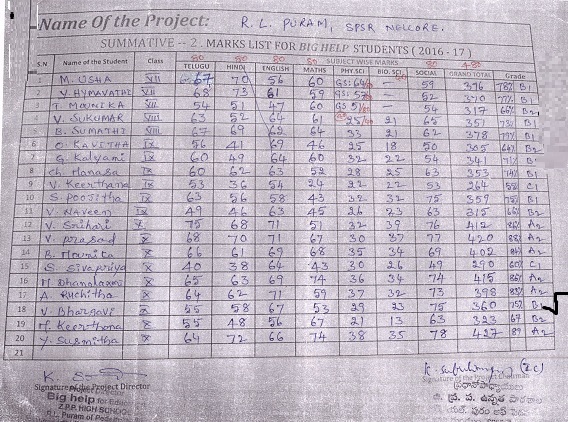 Name Of the Project: R. L. PURAM, SPSR NELLORE.
SUMMATIVE -- 2. MARKS LIST FOR BIG HELP STUDENTS ( 2016 - 17 )
80 80 80 80 80 480
S.N Name of the Student Class SUBJECT WISE MARKS GRAND TOTAL Grade
TELUGU HINDI ENGLISH MATHS PHY.SCI BIO. SCI SOCIAL
1 M. USHA VIII 67 70 56 60 GS: 64 - 59 376 78% B1
2 Y. HYMAVATHI VIII 68 73 61 59 GS: 57 - 52 370 77% B1
3 T. MOUNIKA VIII 54 51 47 60 GS 51 - 54 317 66% B2
4 V. SUKUMAR VIII 63 52 64 61 25/40 21 65 351 73% B1
5 B. SUMATHI VIII 67 69 62 64 33 21 62 378 79% B1
6 O. KAVITHA IX 56 41 69 46 25 18 50 305 64% B2
7 G. Kalyani IX 60 49 64 60 32 22 54 341 71% B1
8 Ch. Manasa IX 60 62 63 52 28 25 63 353 74% B1
9 V. Keerthana IX 53 36 54 24 22 22 53 264 55% C1
10 S. Poojitha IX 63 56 58 43 32 32 75 359 75% B1
11 V. Naveen IX 49 46 63 45 26 23 63 315 66% B2
12 V. Srihari X 75 68 71 51 32 39 76 412 86% A2
13 V. prasad X 68 70 71 67 30 37 77 420 88% A2
14 B. Mounica X 66 61 69 68 35 34 69 402 84% A2
15 S. Sivapriya X 40 38 64 43 30 26 49 290 60% C1
16 M Dhanalaxmi X 65 63 69 74 36 34 74 415 86% A2
17 A. Ruchitha X 64 62 71 59 37 32 73 398 83% A2
18 V. Bhargavi X 55 58 67 53 29 23 75 360 75% B1
19 M. Keerthana X 55 48 56 67 21 13 63 323 67 B2
20 Y. Susmitha X 64 72 66 74 38 35 78 427 89 A2
21
Signature of the Project Director
Big help for Educ
Z.P.P. HIGH SCHOOL
Signature of the
ప్రధానోపాధ్యాయులు